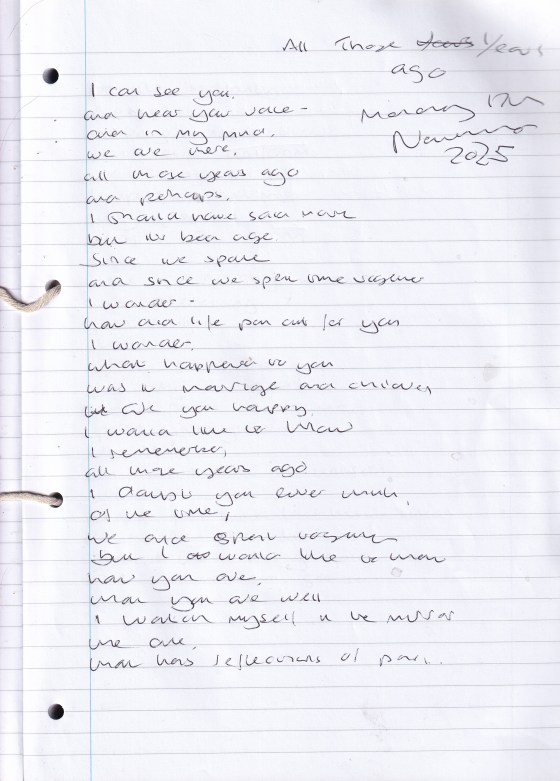 All Those Years Years
ago
Monday 17th
November
2025
I can see you.
and hear your voice -
and in my mind.
we are there.
all those years ago
and perhaps.
I should have said more
but its been age
Since we spoke
and since we spent time together
I wonder -
how did life pan out for you
I wonder,
what happened to you
was it marriage and children
but are you happy.
I would like to know
I remember,
all those years ago
I doubt you ever think,
of the time,
we once spent together
but I do would like to know
how you are.
that you are well
I watch myself in the mirror
the one.
that has reflections of past..